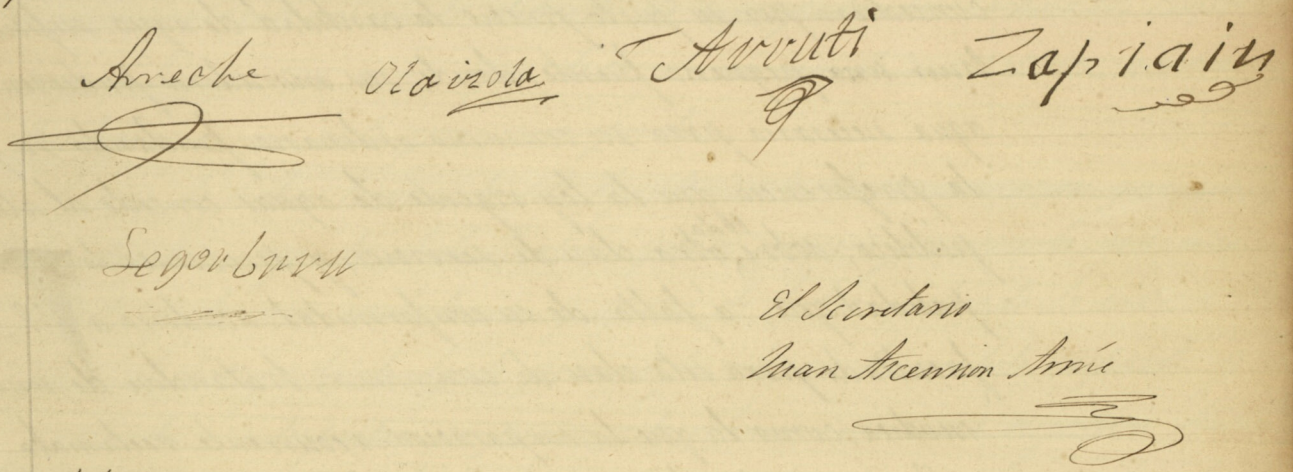 Arreche Olaizola Arruti Zapiain
Segurburu
El Secretario
Juan Ascension Arrúe